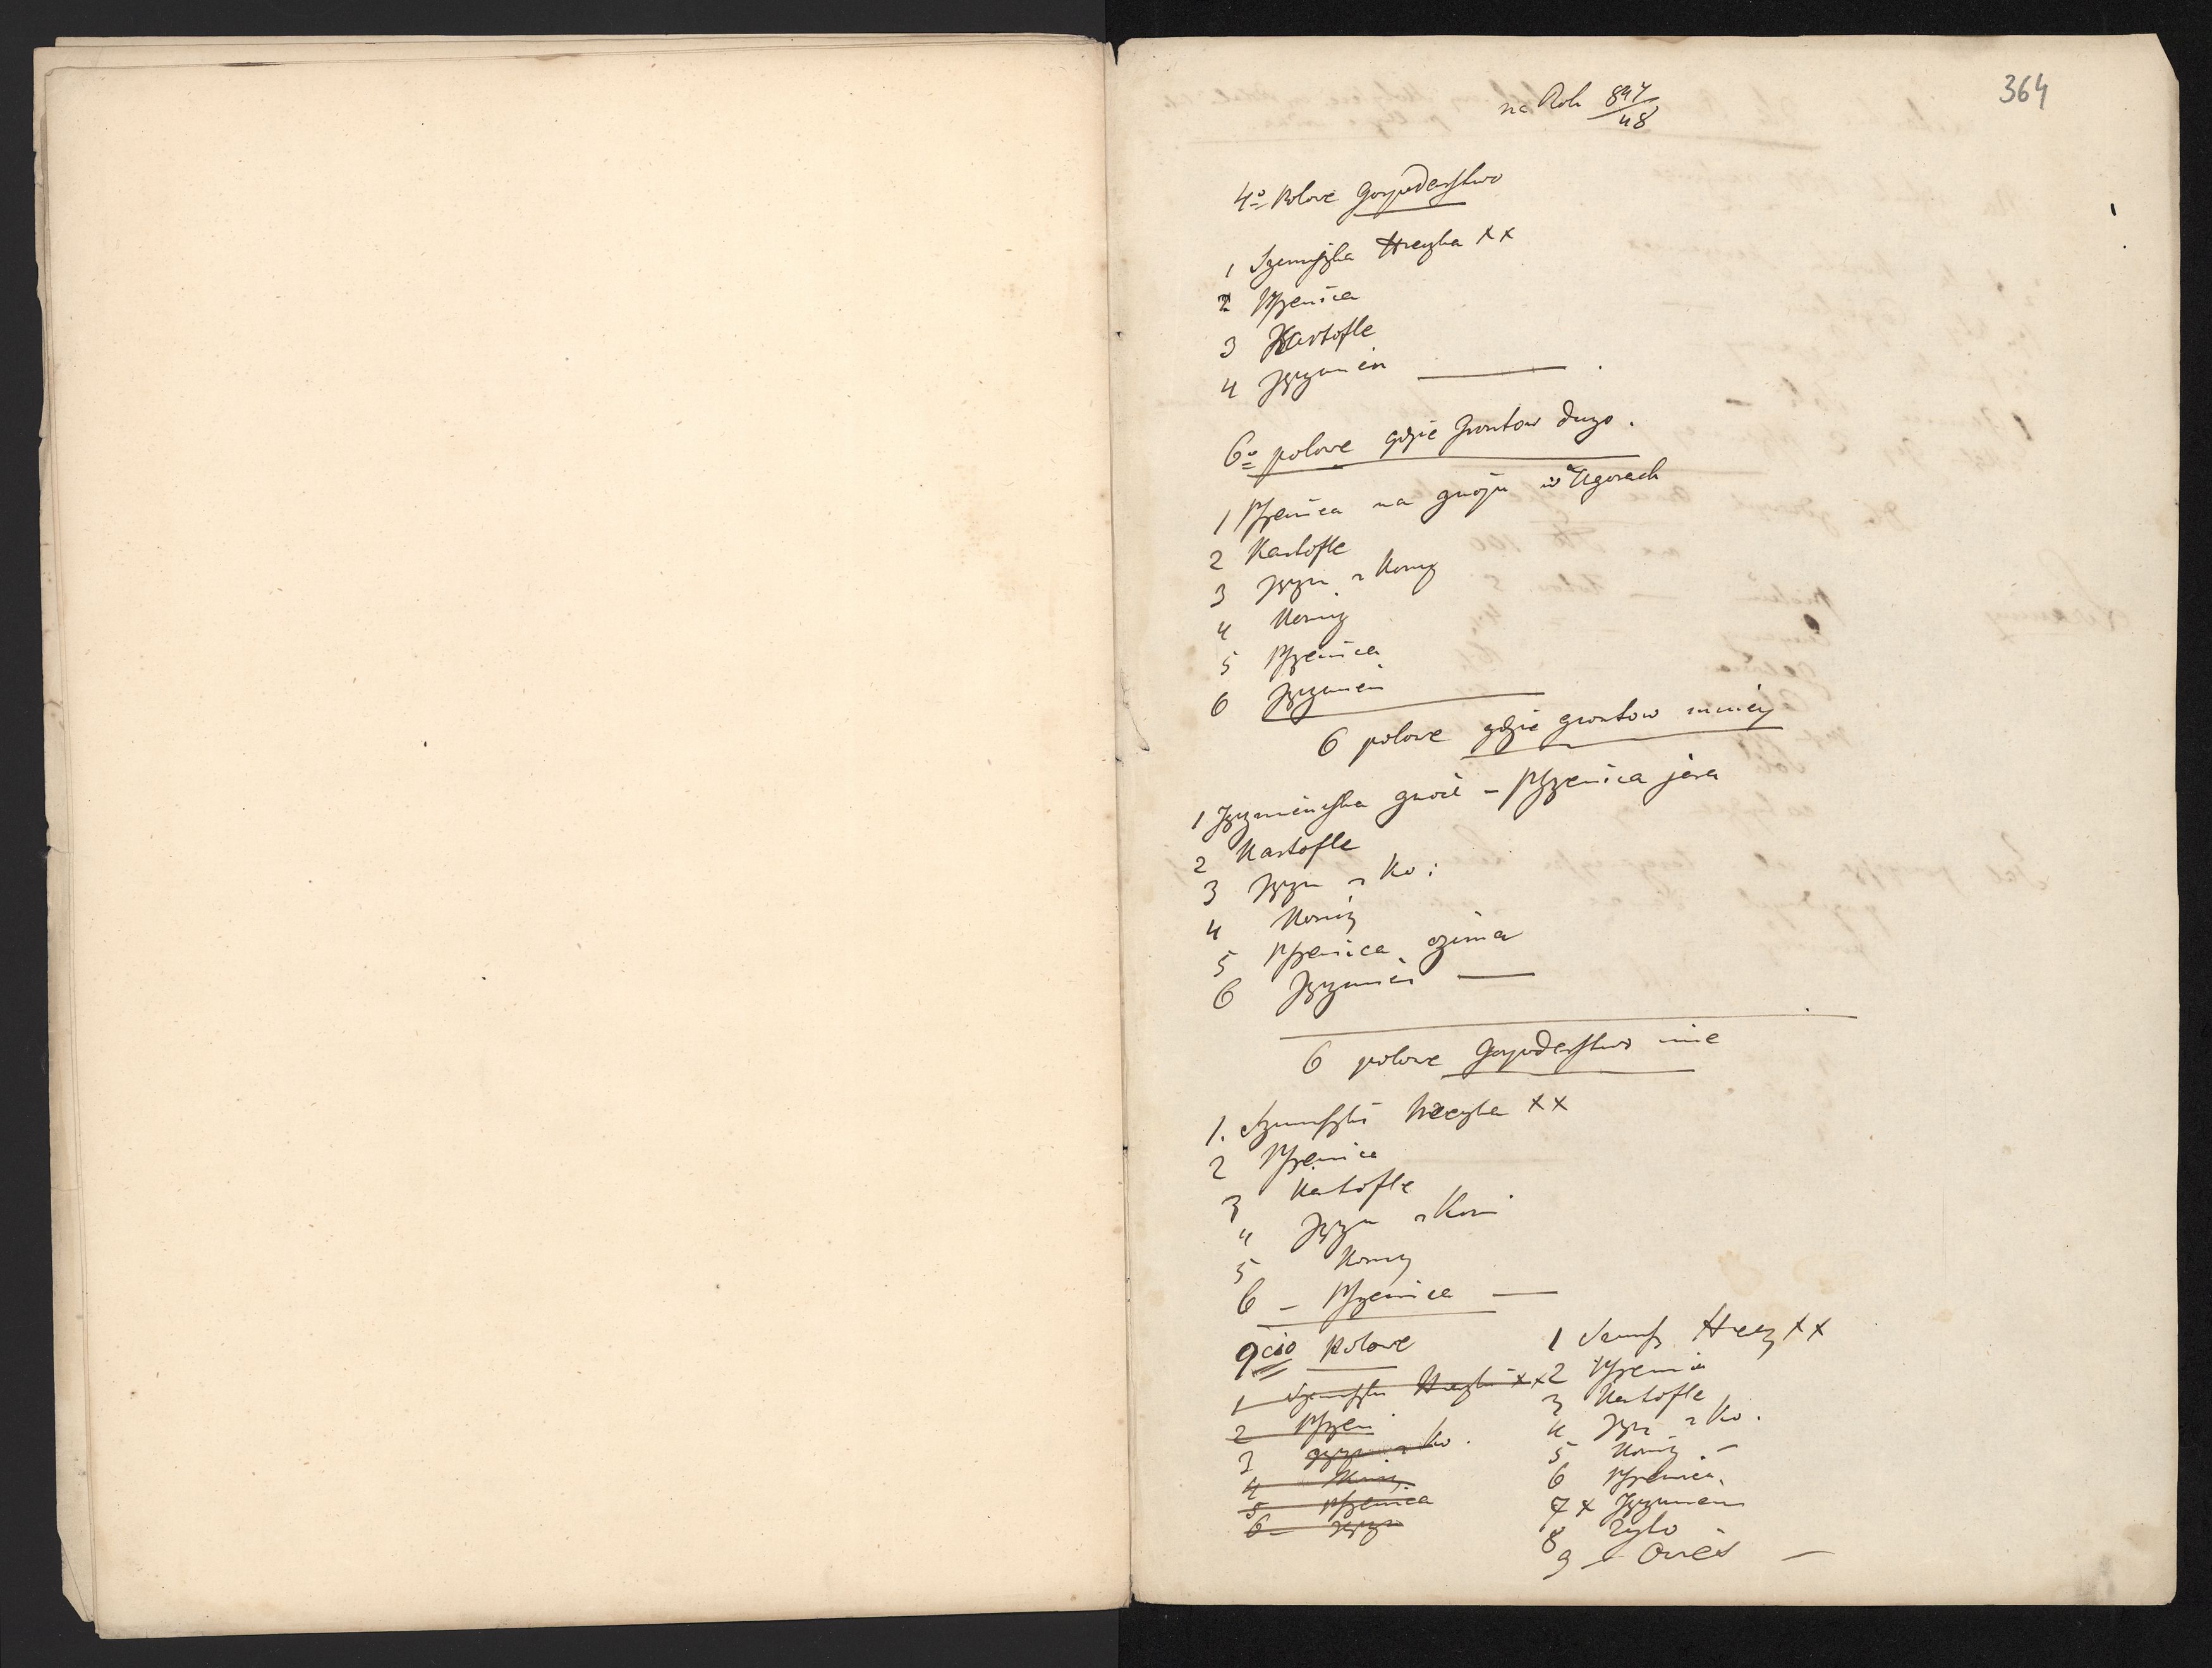 364
na Rok 847/48
4º Polowe Gospodarstwo
1 Szemiszka Hreczka XX
2 Pszenica
3 Kartofle
4 Jęczmien
6º polowe gdzie Grontow duzo.
1 Pszenica na gnoju w Ugorach
2 Kartofle
3 Jęczm z Konicz
4 Konicz
5 Pszenica
6 Jęczmien
6 polowe gdzie grontow mniey
1 Jęczmieniska gnoić – Pszzenica jara
2 Kartofle
3 Jęczm z Ko:
4 Konicz
5 Pszenica ozima
6 Jęczmien
6 polowe Gospodarstwo inne
1. Hreczka XX
2 Pszenica
3 Kartofle
4 Jęczm z Koni
5 Konicz
6 – Pszenica
9cio Polowe
1 Hreczka XX
2 Pszen
3 Jęczm z Ko.
4 Konicz
5 Pszenica
6 – Jęczm
1 Hrecz XX
2 Pszenica
3 Kartofle
4 Jęcz z Ko.
5 Konicz –
6 Pszenica
7 x Jęczmien
8 Zyto
9 – Owies –